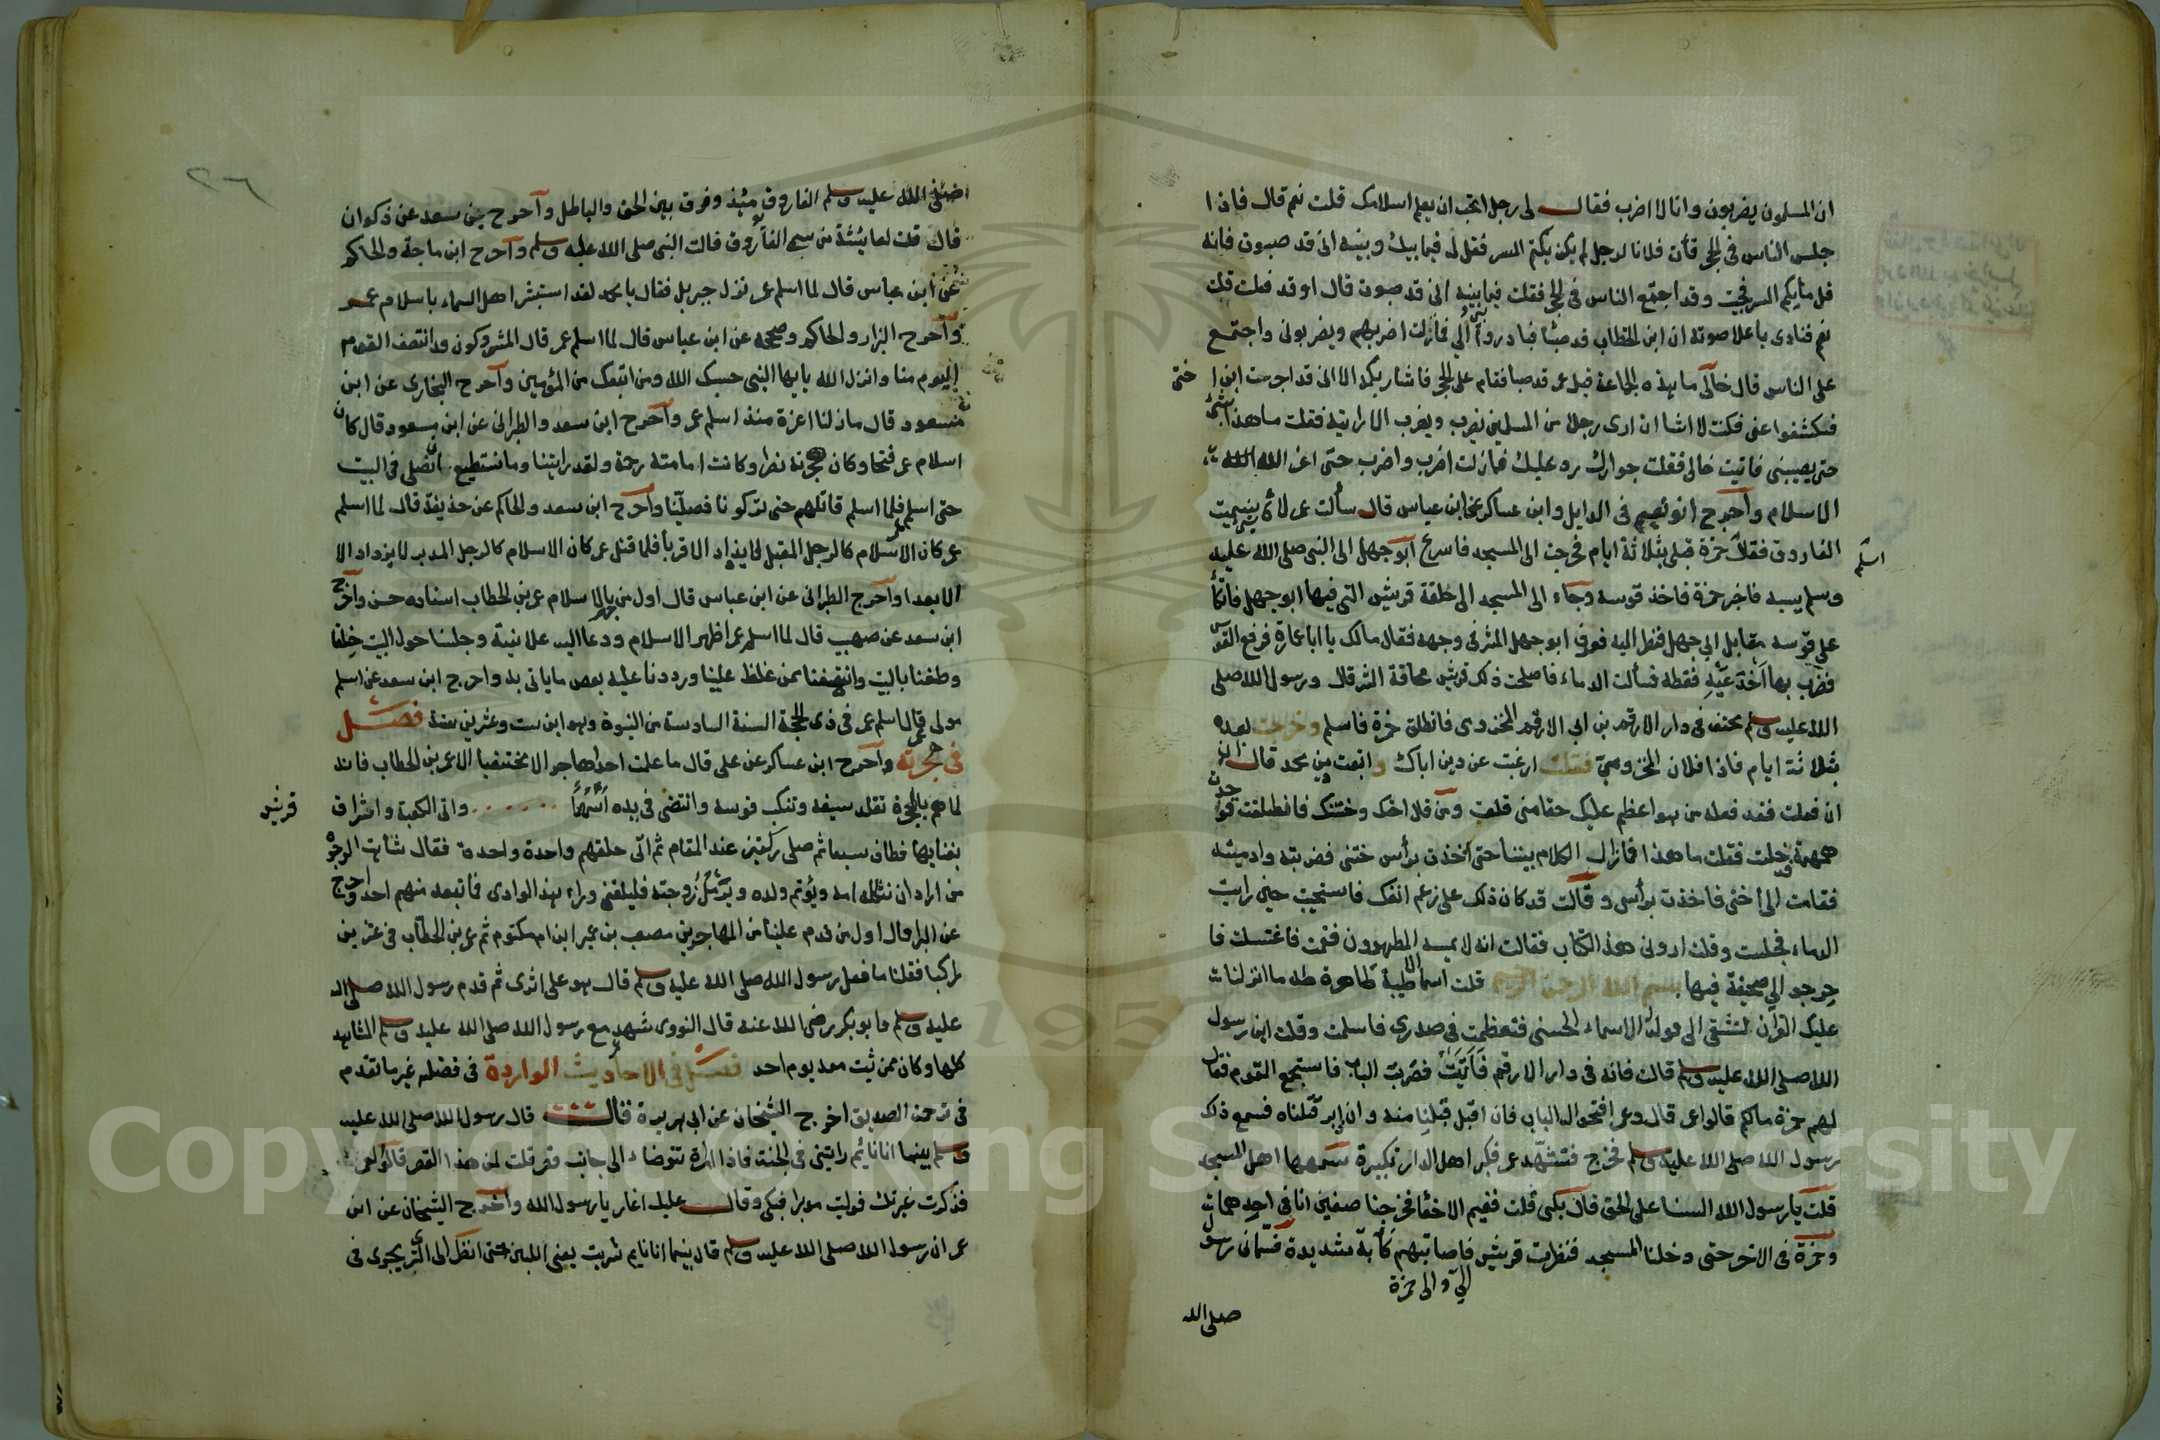 ان المسلمون يضربون وانا لا اضرب فقال لى رجل اتحب ان يعلم اسلامك قلت نعم قال فاذا
جلس الناس فى الحجر فأت فلانا لرجل لم يكن يكتم السر فقل له فيما بينك وبينه انى قد صبوت فانه
قل ما يكتم السر فجيت وقد اجتمع الناس فى الحجر فقلت فيما بينى وبينه انى قد صبوت قال او قد فعلت قلت
نعم فنادى باعلا صوته ان ابن الخطاب قد صبا فبادروا الي فمازلت اضربهم ويضربونى واجتمع
على الناس قال خالى ما هذه الجماعة قيل عمر قد صبا فقام على الحجر فاشار بكمه الا انى قد اجرت ابن اختى
فتكشفوا عنى فكنت لا اشا ان ارى رجلا من المسلمين يضرب ويضرب الا رايته فقلت ما هذا بشئ
حتى يصيبنى فاتيت خالى فقلت جوارك رد عليك فمازلت اضرب واضرب حتى اعز الله
الاسلام واخرج ابو نعيم فى الدلايل وابن عساكر عن ابن عباس قال سألت عمر لاى شئ سميت
الفاروق فقال اسلم حمزة قبلى بثلاثة ايام فخرجت الى المسجد فاسرع ابو جهل الى النبى صلى الله عليه
وسلم يسبه فاخبر حمزة فاخذ قوسه وجاء الى المسجد الى حلقة قريش التى فيها ابو جهل فاتكأ
على قوسه مقابل ابى جهل فنظر اليه فعرف ابو جهل الشر فى وجهه فقال مالك يا ابا عمارة فرفع القوس
فضرب بها اخدعيه فقطه فسألت الدماء فاصلحت ذلك قريش مخافة الشر قال ورسول الله صلى
الله عليه وسلم مختف فى دار الارقم بن ابى الارقم المخزومى فانطلق حمزة فاسلم وخرجت بعده
بثلاثة ايام فاذا فلان المخزومى فقلت ارغبت عن دين اباك واتبعت دين محمد قال
ان فعلت فقد فعله من هو اعظم عليك حقا منى قلت ومن قال اختك وختنك فانطلقت فوجدت
همهمة فدخلت فقلت ما هذا فمازال الكلام بيننا حتى اخذت برأس ختنى فضربته وادميته
فقامت الى اختى فاخذت برأسى وقالت قد كان ذلك على زغم انفك فاستحييت حين رايت
الدماء فجلست وقلت ارونى هذا الكتاب فقالت انه لا يمسه الا المطهرون فقمت فاغتسلت فا
خرجوا الى صحيفة فيها بسم الله الرحمن الرحيم قلت اسما طيبة طاهرة طه ما انزلنا
عليك القرآن لتشقى الى قوله الاسماء الحسنى فتعظمت فى صدرى فاسلمت وقلت اين رسول
الله صلى الله عليه وسلم قالت فانه فى دار الارقم فاتيت فضربت الباب فاستجمع القوم فقال
لهم حمزة مالكم قالوا عمر قال وعمر افتحوا له الباب فان اقبل قبلنا منه وان ادبر قتلناه فسمع ذلك
رسول الله صلى الله عليه وسلم فخرج فتشهد عمر فكبر اهل الدار تكبيرة سمعها اهل المسجد
قلت يا رسول الله السنا على الحق قال بلى قلت ففيم الاخفا فخرجنا صفين انا فى احدهما
وحمزة فى الاخر حتى دخلنا المسجد فنظرت قريش الي والى حمزة فاصابتهم كأبة شديدة فسمانى رسول
صلى الله
٢٦
صلى الله عليه وسلم الفاروق يومئذ وفرق بين الحق والباطل واخرج بن سعد عن ذكوان
قال قلت لعايشة من سمى الفاروق قالت النبى صلى الله عليه وسلم واخرج ابن ماجة والحاكم
عن ابن عباس قال لما اسلم عمر نزل جبريل فقال يا محمد لقد استبشر اهل السماء باسلام عمر
واخرج البزار والحاكم وصححه عن ابن عباس قال لما اسلم عمر قال المشركون قد انتصف القوم
اليوم منا وانزل الله يا يها النبى حسبك الله ومن اتبعك من المؤمنين واخرج البخارى عن ابن
مسعود قال ما زلنا اعزة منذ اسلم عمر واخرج ابن سعد والطبرانى عن ابن مسعود قال كان
اسلام عمر فتحا وكان هجرته نصرا وكانت امامته رحمة ولقد رايتنا وما نستطيع ان نصلى فى البيت
حتى اسلم عمر فلما اسلم قاتلهم حتى تركونا فصلينا واخرج ابن سعد والحاكم عن حذيفة قال لما اسلم
عمر كان الاسلام كالرجل المقبل لا يزداد الا قربا فلما قتل عمر كان الاسلام كالرجل المدبر لا يزداد الا
الا بعدا واخرج الطبرانى عن ابن عباس قال اول من جهر بالاسلام عمر بن الخطاب اسناده حسن واخرج
ابن سعد عن صهيب قال لما اسلم عمر اظهر الاسلام ودعا اليه علانية وجلسنا حول البيت حلقا
وطفنا بالبيت وانتصفنا ممن غلظ علينا ورددنا عليه بعض ما ياتى به واخرج ابن سعد عن اسلم
مولى عمر قال اسلم عمر فى ذى الحجة السنة السادسة من النبوة وهو ابن ست وعشرين سنة فصل
فى هجرته واخرج ابن عساكر عن على قال ما علمت احدا هاجر الا مختفيا الا عمر بن الخطاب فانه
لما هم بالهجرة تقلد سيفه وتنكب قوسه وانتضى فى يده اسهما واتى الكعبة واشراف قريش
بفنايها فطاف سبعا ثم صلى ركعتين عند المقام ثم اتى حلقهم واحدة واحدة فقال شاهت الوجوه
من اراد ان تثكله امه ويؤتم ولده وترمل زوجته فليلقنى وراء هذا الوادى فما تبعه منهم احد واخرج
عن البرا قال اول من قدم علينا من المهاجرين مصعب بن عمير ابن ام مكتوم ثم عمر بن الخطاب فى عشرين
راكبا فقلنا ما فعل رسول الله صلى الله عليه وسلم قال هو على اثرى ثم قدم رسول الله صلى الله
عليه وسلم وابو بكر رضى الله عنه قال النووى شهد عمر مع رسول الله صلى الله عليه وسلم المشاهد
كلها وكان ممن ثبت معه يوم احد فصل فى الاحاديث الواردة فى فضله غير ما تقدم
فى ترجمة الصديق اخرج الشيخان عن ابى هريرة قال قال رسول الله صلى الله عليه
وسلم بينما انا نايم رايتنى فى الجنة فاذا امراة تتوضاء الى جانب قصر قلت لمن هذا القصر قالوا لعمر
فذكرت غيرتك فوليت مدبرا فبكى وقال عليك اغار يا رسول الله واخرج الشيخان عن ابن
عمر ان رسول الله صلى الله عليه وسلم قال بينما انا نايم شربت يعنى اللبن حتى انظر الى الرى يجرى فى
Copyright © King Saud University
195